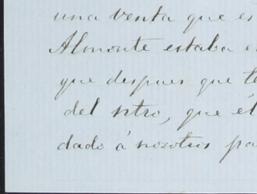 una venta que es
Almonte estaba e
que despues que te
del sitio, que él
dado á nosotros pa